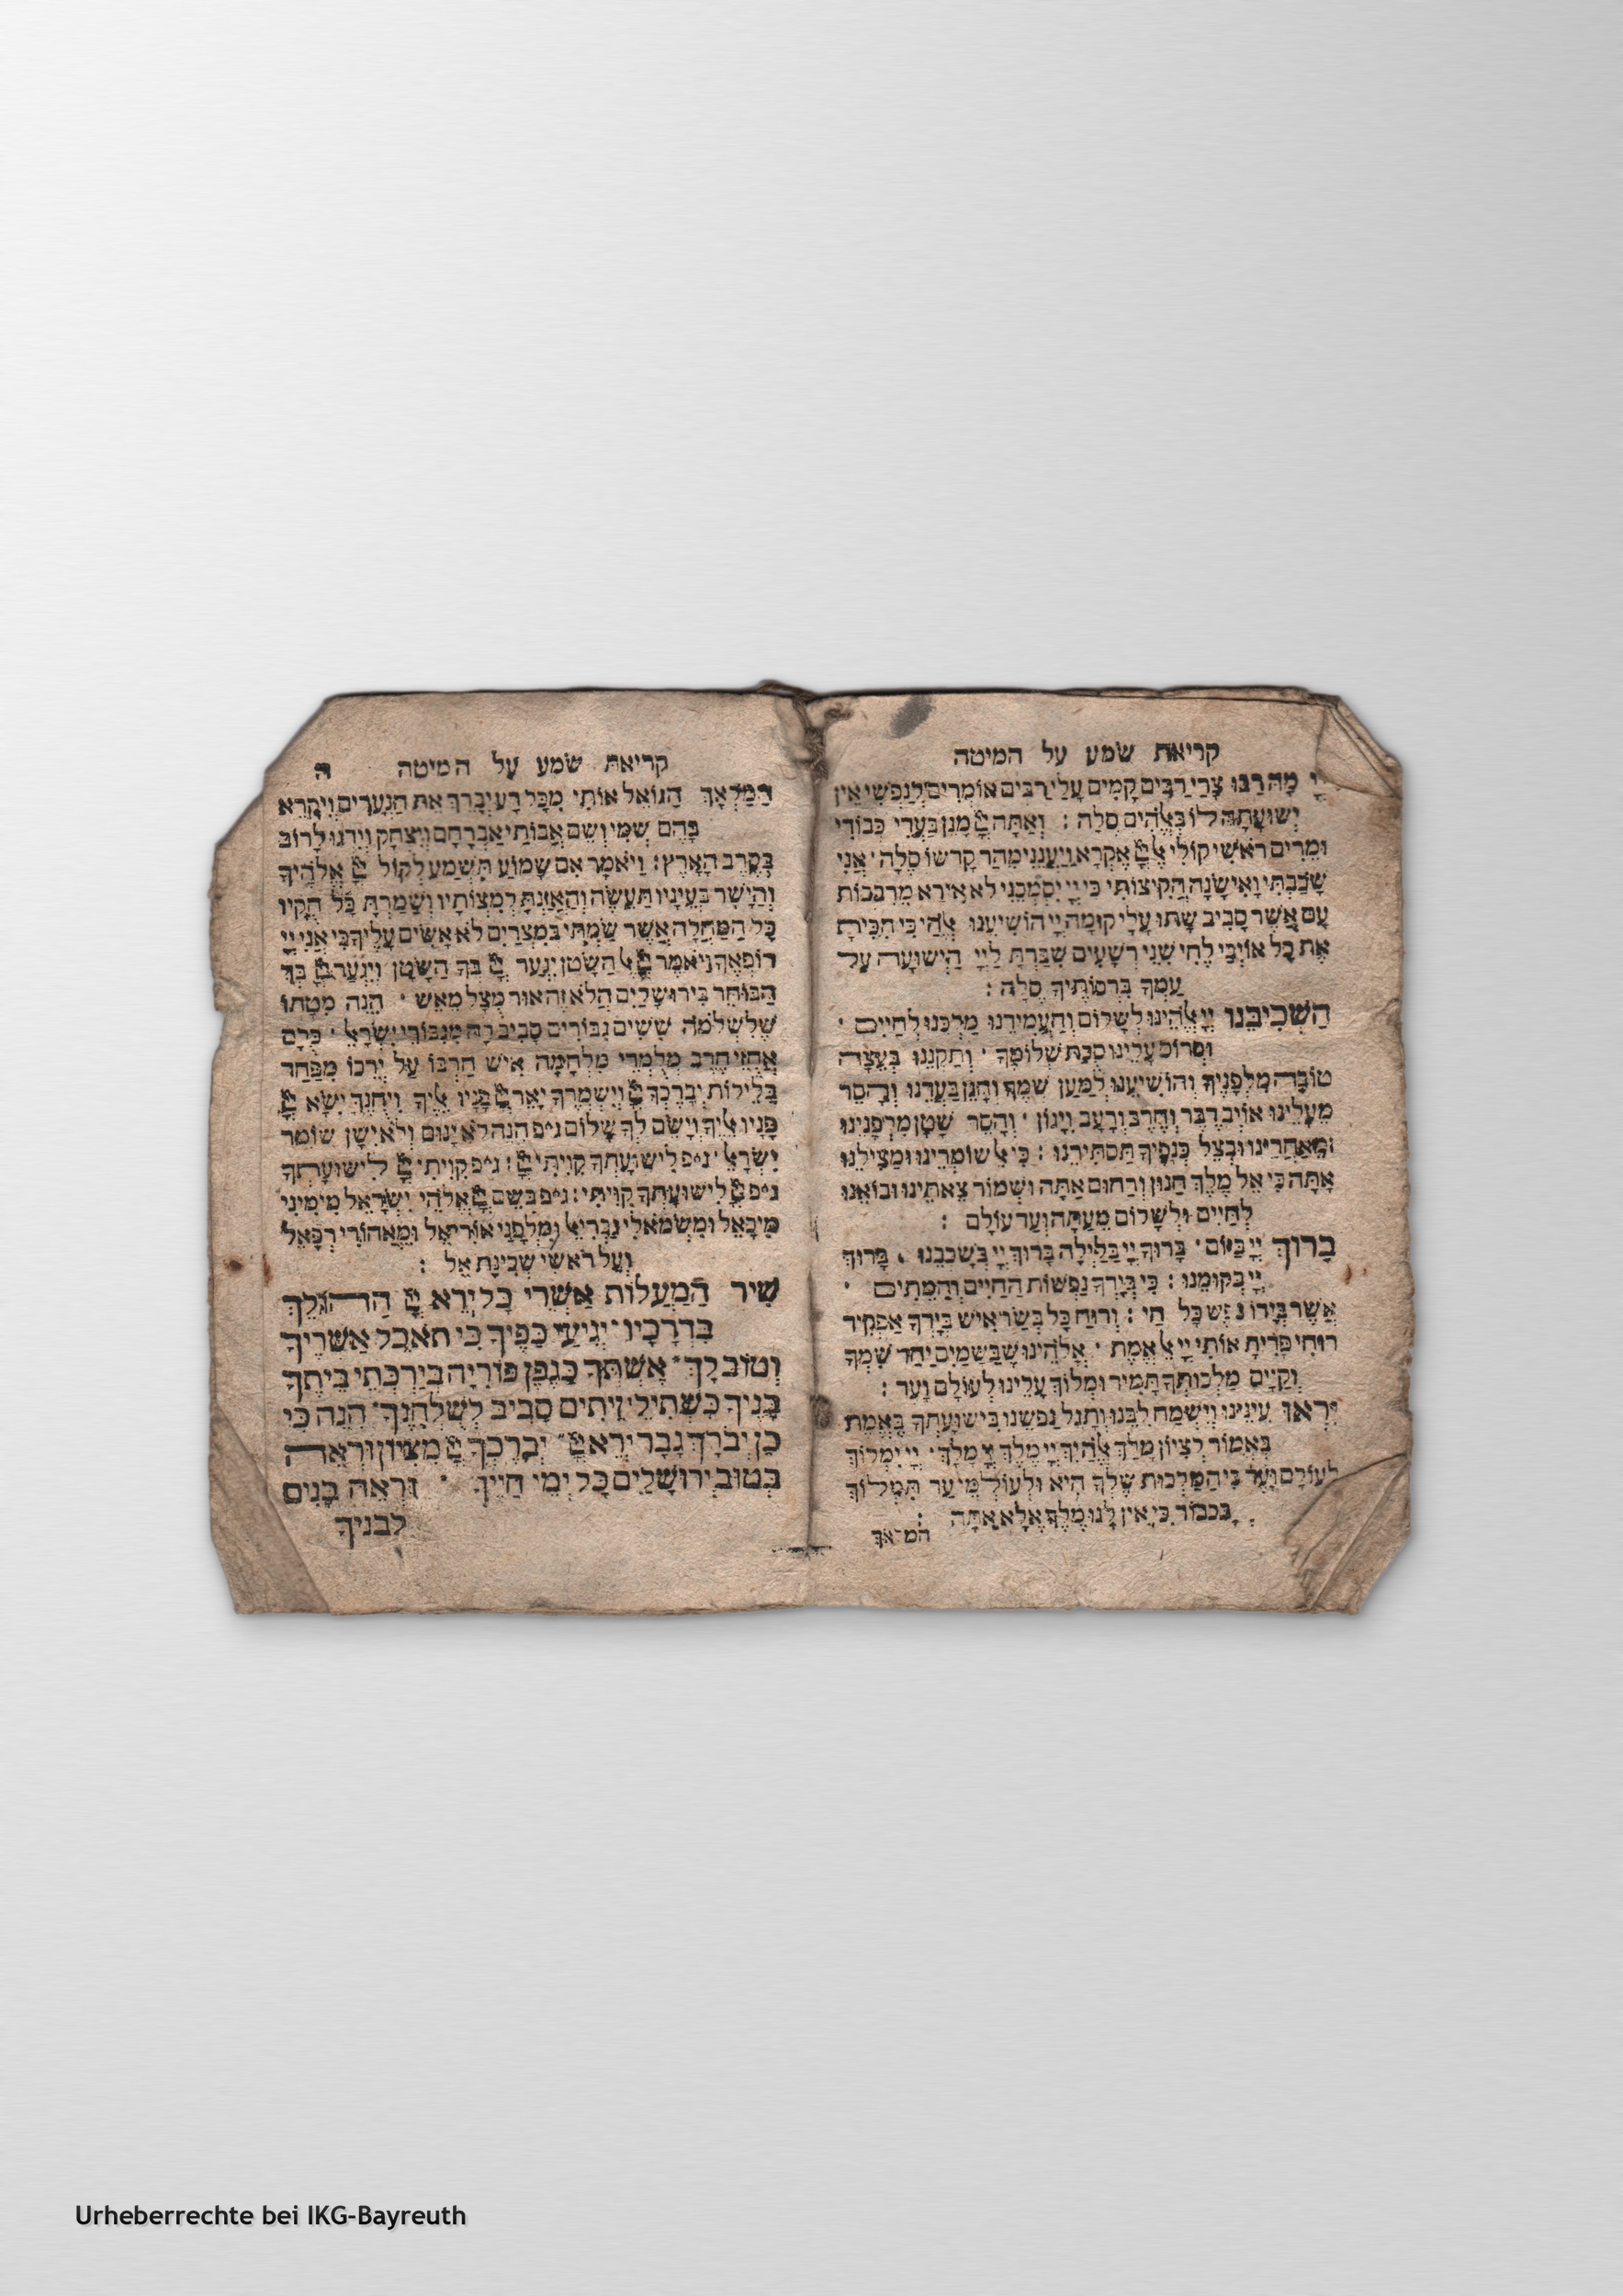 קריאת שמע על המיטה
יְיָ מָה רַבּוּ צָרָי רַבִּים קָמִים עָלָי רַבִּים אוֹמְרִים לְנַפְשִׁי אֵין
יְשׁוּעָתָה לּוֹ בֵאלֹהִים סֶלָה : וְאַתָּה מָגֵן בַּעֲדִי כְּבוֹדִי
וּמֵרִים רֹאשִׁי קוֹלִי אֶקְרָא וַיַּעֲנֵנִי מֵהַר קָדְשׁוֹ סֶלָה · אֲנִי
שָׁכַבְתִּי וָאִישָׁנָה הֱקִיצוֹתִי כִּי יְיָ יִסְמְכֵנִי לֹא אִירָא מֵרִבְבוֹת
עָם אֲשֶׁר סָבִיב שָׁתוּ עָלָי קוּמָה יְיָ הוֹשִׁיעֵנִי אֱלֹהַי כִּי הִכִּיתָ
אֶת כָּל אוֹיְבַי לֶחִי שִׁנֵּי רְשָׁעִים שִׁבַּרְתָּ לַיְיָ הַיְשׁוּעָה עַל
עַמְּךָ בִּרְכוֹתֶיךָ סֶלָה :
הַשְׁכִּיבֵנוּ יְיָ אֱלֹהֵינוּ לְשָׁלוֹם וְהַעֲמִידֵנוּ מַלְכֵּנוּ לְחַיִּים ·
וּפְרוֹס עָלֵינוּ סֻכַּת שְׁלוֹמֶךָ · וְתַקְּנֵנוּ בְּעֵצָה
טוֹבָה מִלְּפָנֶיךָ וְהוֹשִׁיעֵנוּ לְמַעַן שְׁמֶךָ וְהָגֵן בַּעֲדֵנוּ וְהָסֵר
מֵעָלֵינוּ אוֹיֵב דֶּבֶר וְחֶרֶב וְרָעָב וְיָגוֹן · וְהָסֵר שָׂטָן מִלְּפָנֵינוּ
וּמֵאַחֲרֵינוּ וּבְצֵל כְּנָפֶיךָ תַּסְתִּירֵנוּ : כִּי אֵל שׁוֹמְרֵינוּ וּמַצִּילֵנוּ
אָתָּה כִּי אֵל מֶלֶךְ חַנּוּן וְרַחוּם אַתָּה וּשְׁמוֹר צֵאתֵינוּ וּבוֹאֵנוּ
לְחַיִּים וּלְשָׁלוֹם מֵעַתָּה וְעַד עוֹלָם :
בָּרוּךְ יְיָ בַּיּוֹם · בָּרוּךְ יְיָ בַּלַּיְלָה בָּרוּךְ יְיָ בְּשָׁכְבֵנוּ · בָּרוּךְ
יְיָ בְּקוּמֵנוּ : כִּי בְיָדְךָ נַפְשׁוֹת הַחַיִּים וְהַמֵּתִים ·
אֲשֶׁר בְּיָדוֹ נֶפֶשׁ כָּל חַי : וְרוּחַ כָּל בְּשַׂר אִישׁ בְּיָדְךָ אַפְקִיד
רוּחִי פָּדִיתָ אוֹתִי יְיָ אֵל אֱמֶת · אֱלֹהֵינוּ שֶׁבַּשָּׁמַיִם יַחֵד שִׁמְךָ
וְקַיֵּים מַלְכוּתְךָ תָּמִיד וּמְלוֹךְ עָלֵינוּ לְעוֹלָם וָעֶד :
יִרְאוּ עֵינֵינוּ וְיִשְׂמַח לִבֵּנוּ וְתָגֵל נַפְשֵׁנוּ בִּישׁוּעָתְךָ בֶּאֱמֶת
בֶּאֱמוֹר לְצִיּוֹן מָלַךְ אֱלֹהָיִךְ יְיָ מֶלֶךְ יְיָ מָלָךְ · יְיָ יִמְלוֹךְ
לְעוֹלָם וָעֶד כִּי הַמַּלְכוּת שֶׁלְּךָ הִיא וּלְעוֹלְמֵי עַד תִּמְלוֹךְ
בְּכָבוֹד כִּי אֵין לָנוּ מֶלֶךְ אֶלָּא אָתָּה :
המלאך
קריאת שמע על המיטה ה
הַמַּלְאָךְ הַגּוֹאֵל אוֹתִי מִכָּל רָע יְבָרֵךְ אֶת הַנְּעָרִים וְיִקָּרֵא
בָּהֶם שְׁמִי וְשֵׁם אֲבוֹתַי אַבְרָהָם וְיִצְחָק וְיִדְגּוּ לָרוֹב
בְּקֶרֶב הָאָרֶץ : וַיֹּאמֶר אִם שָׁמוֹעַ תִּשְׁמַע לְקוֹל אֱלֹהֶיךָ
וְהַיָּשָׁר בְּעֵינָיו תַּעֲשֶׂה וְהַאֲזַנְתָּ לְמִצְוֹתָיו וְשָׁמַרְתָּ כָּל חֻקָּיו
כָּל הַמַּחֲלָה אֲשֶׁר שַׂמְתִּי בְמִצְרַיִם לֹא אָשִׂים עָלֶיךָ כִּי אֲנִי יְיָ
רוֹפְאֶךָ וַיֹּאמֶר אֶל הַשָּׂטָן יִגְעַר בְּךָ הַשָּׂטָן וְיִגְעַר בְּךָ
הַבּוֹחֵר בִּירוּשָׁלַיִם הֲלֹא זֶה אוּד מֻצָּל מֵאֵשׁ · הִנֵּה מִטָּתוֹ
שֶׁלִּשְׁלֹמֹה שִׁשִּׁים גִּבּוֹרִים סָבִיב לָהּ מִגִּבּוֹרֵי יִשְׂרָאֵל · כֻּלָּם
אֲחֻזֵי חֶרֶב מְלֻמְּדֵי מִלְחָמָה אִישׁ חַרְבּוֹ עַל יְרֵכוֹ מִפַּחַד
בַּלֵּילוֹת יְבָרֶכְךָ וְיִשְׁמְרֶךָ יָאֵר פָּנָיו אֵלֶיךָ וִיחֻנֶּךָּ יִשָּׂא
פָּנָיו אֵלֶיךָ וְיָשֵׂם לְךָ שָׁלוֹם ג״פ הִנֵּה לֹא יָנוּם וְלֹא יִישָׁן שׁוֹמֵר
יִשְׂרָאֵל · ג״פ לִישׁוּעָתְךָ קִוִּיתִי : ג״פ קִוִּיתִי לִישׁוּעָתְךָ
ג״פ לִישׁוּעָתְךָ קִוִּיתִי : ג״פ בְּשֵׁם אֱלֹהֵי יִשְׂרָאֵל מִימִינִי
מִיכָאֵל וּמִשְּׂמֹאלִי גַּבְרִיאֵל וּמִלְּפָנַי אוּרִיאֵל וּמֵאֲחוֹרַי רְפָאֵל
וְעַל רֹאשִׁי שְׁכִינַת אֵל :
שִׁיר הַמַּעֲלוֹת אַשְׁרֵי כָּל יְרֵא הַהוֹלֵךְ
בִּדְרָכָיו · יְגִיעַ כַּפֶּיךָ כִּי תֹאכֵל אַשְׁרֶיךָ
וְטוֹב לָךְ · אֶשְׁתְּךָ כְּגֶפֶן פּוֹרִיָּה בְּיַרְכְּתֵי בֵיתֶךָ
בָּנֶיךָ כִּשְׁתִילֵי זֵיתִים סָבִיב לְשֻׁלְחָנֶךָ · הִנֵּה כִי
כֵן יְבֹרַךְ גָּבֶר יְרֵא · יְבָרֶכְךָ מִצִּיּוֹן וּרְאֵה
בְּטוּב יְרוּשָׁלַיִם כָּל יְמֵי חַיֶּיךָ · וּרְאֵה בָנִים
לְבָנֶיךָ
Urheberrechte bei IKG-Bayreuth